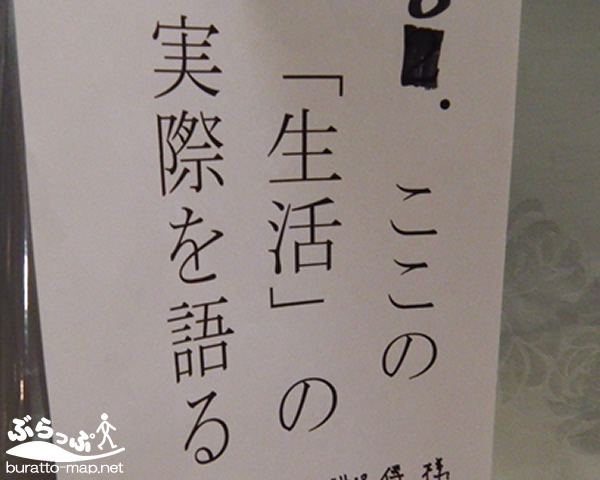 ここの
「生活」の
実際を語る
様
ぶらっぷ
buratto-map.net